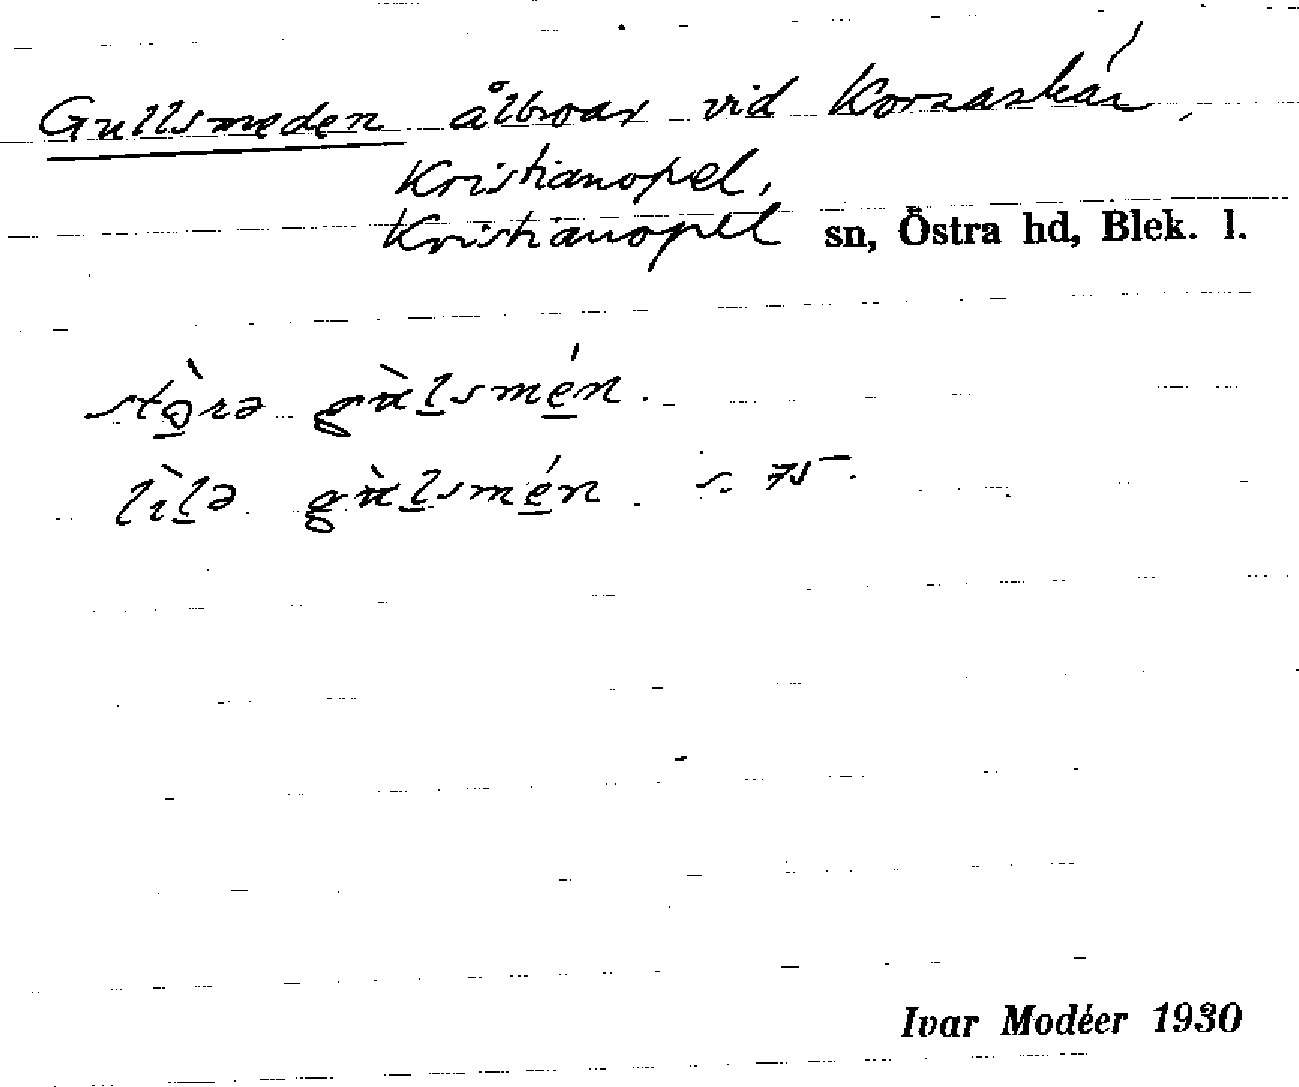 Gullsmeden ålbroar vid Korsaskär,
Kristianopel,
Kristianopel sn, Östra hd, Blek. l.
stò̱rə gùḻsmé̱n.
lìḻə gùḻsmé̱n. s. 75.
Ivar Modéer 1930